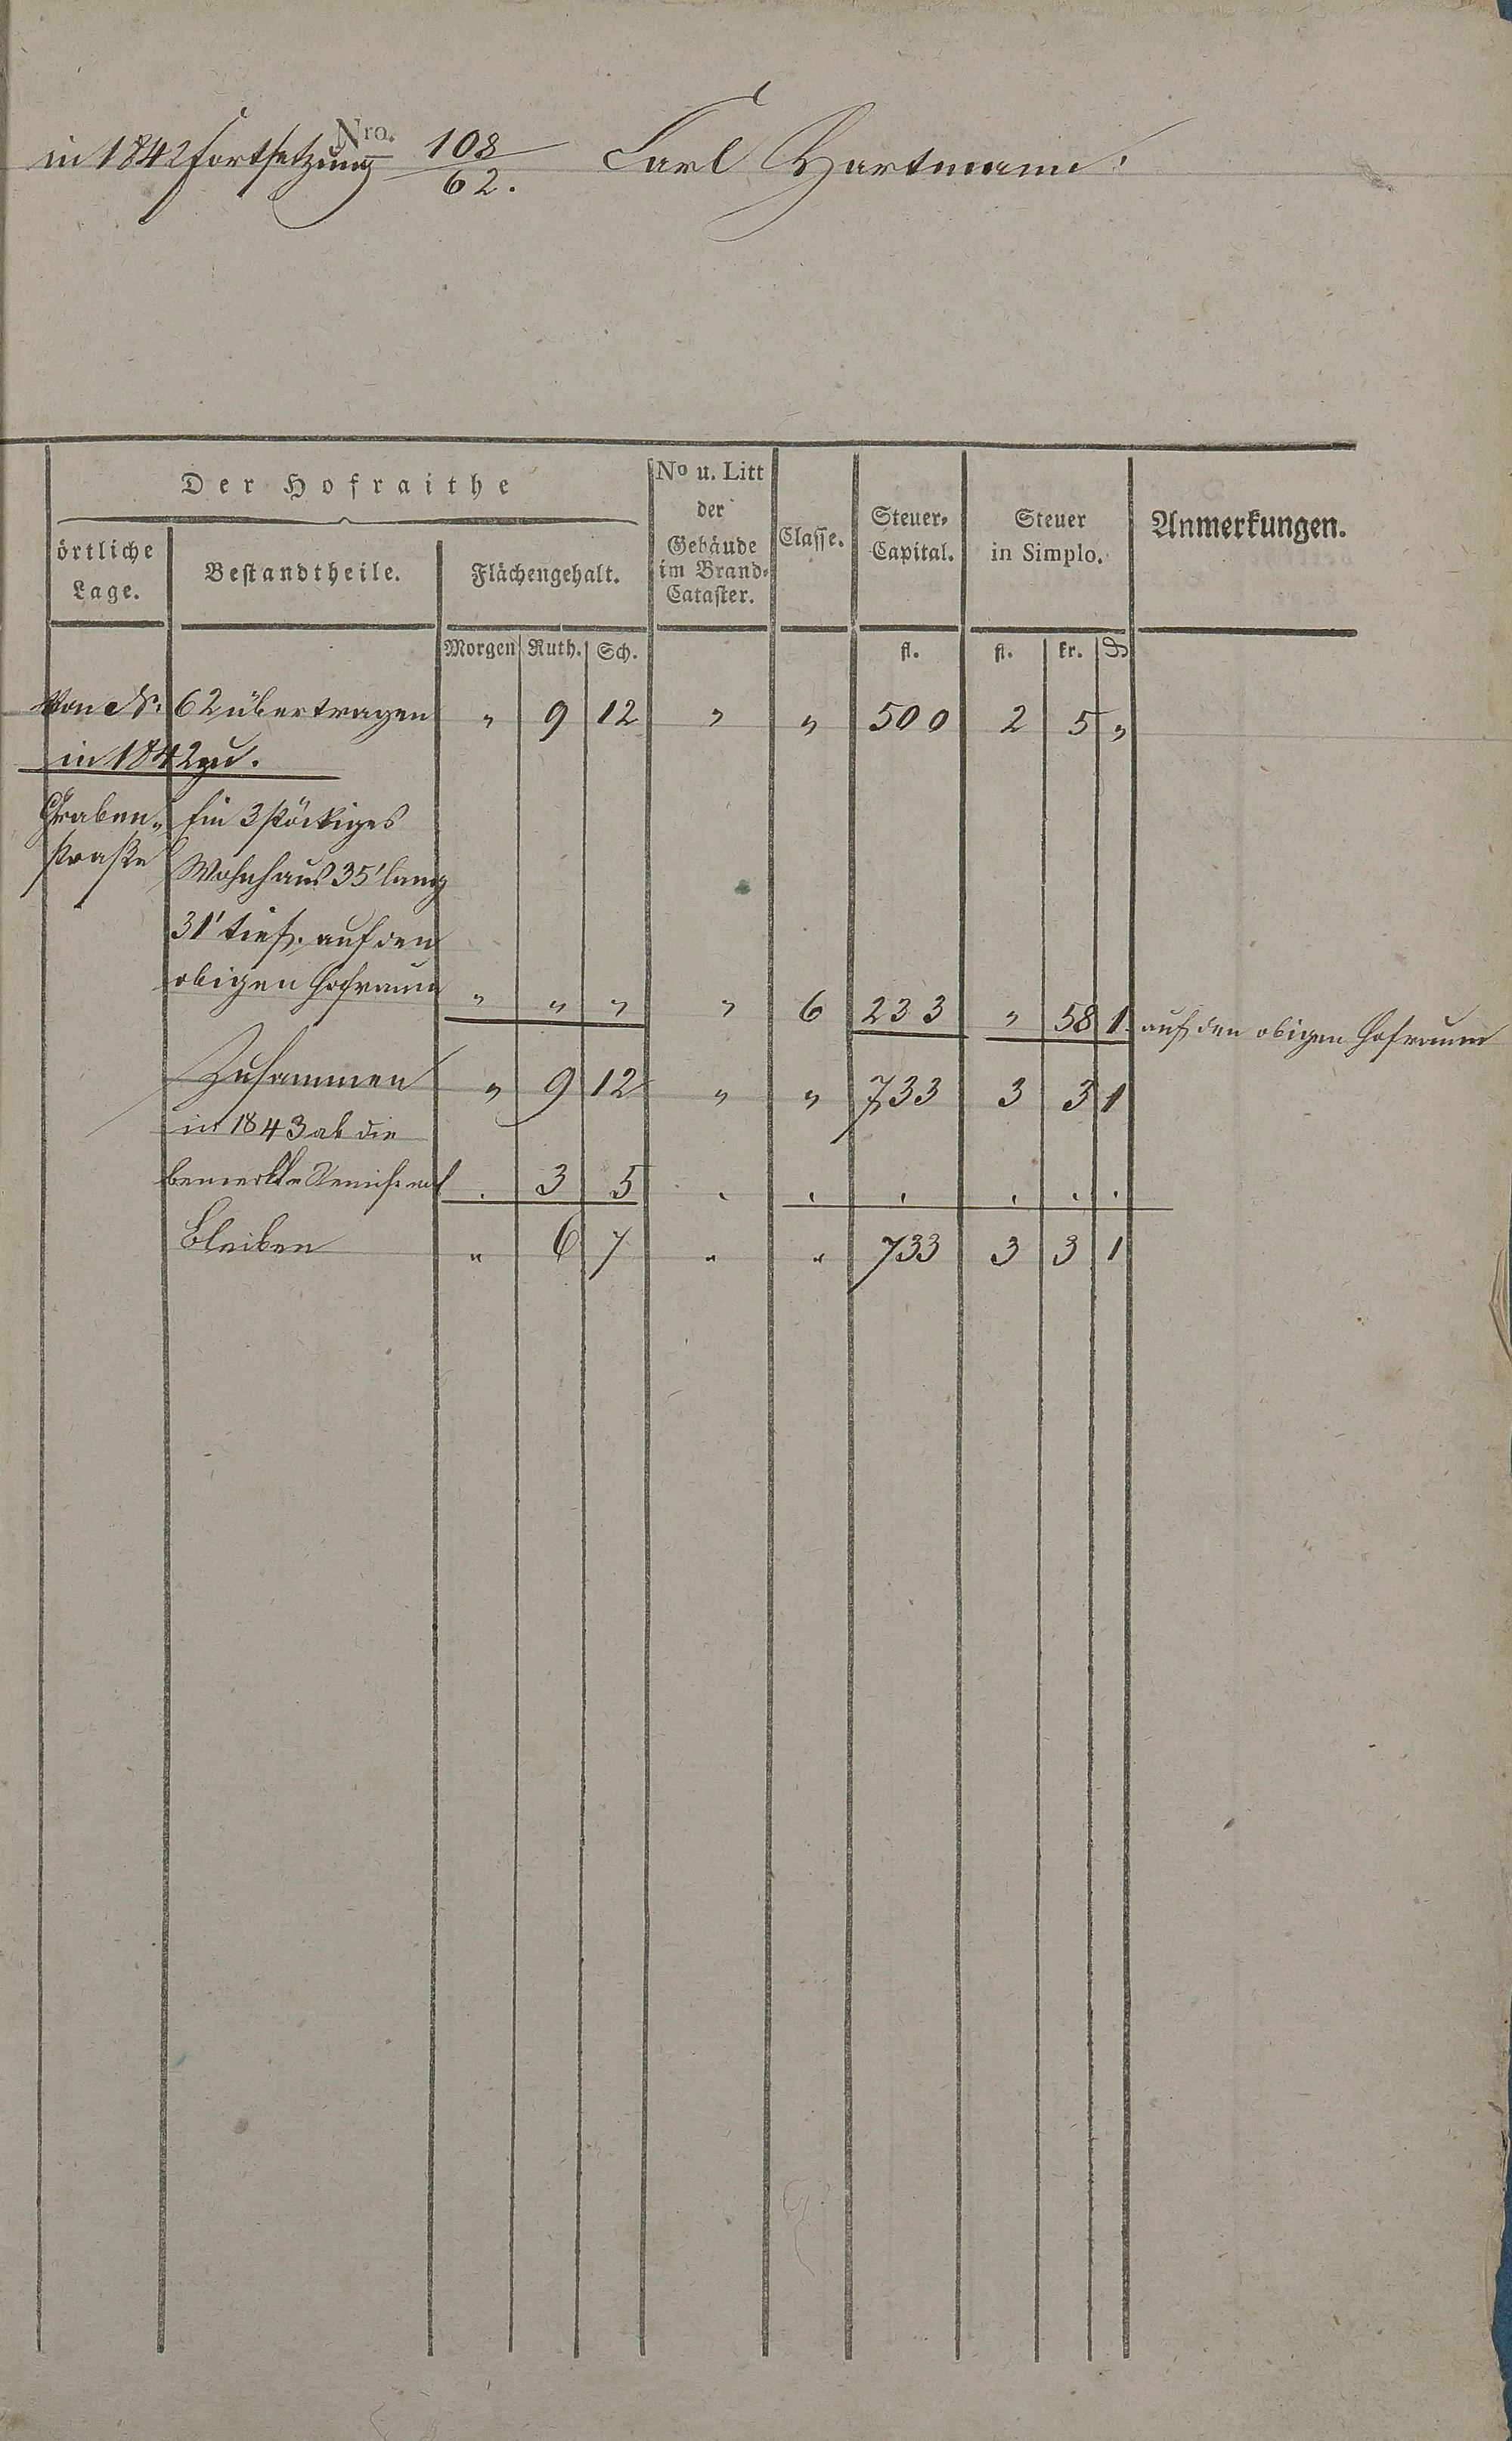 Nro.
in 1842 Fortsetzung 108/62. Carl Hartmann.
Der Hofraithe
örtliche Lage.
Bestandtheile.
Flächengehalt.
No u. Litt der Gebäude im Brand-Cataster.
Classe.
Steuer-Capital.
Steuer in Simplo.
Anmerkungen.
Morgen Ruth. Sch. fl. fl. kr. ₰
Von No. 62 übertragen " 9 12 " " 500 2 5 "
in 1842 zu.
Graben- Ein 3 stöckiges
straße Wohnhaus 35' lang
31' tief. auf den
obigen Hofraum " " " " 6 233 " 58 1. auf den obigen Hofraum
Zusammen " 9 12 " " 733 3 3 1
in 1843 ab die
bemerkte . 3 5 . . . . . .
Bleiben " 6 7 " " 733 3 3 1